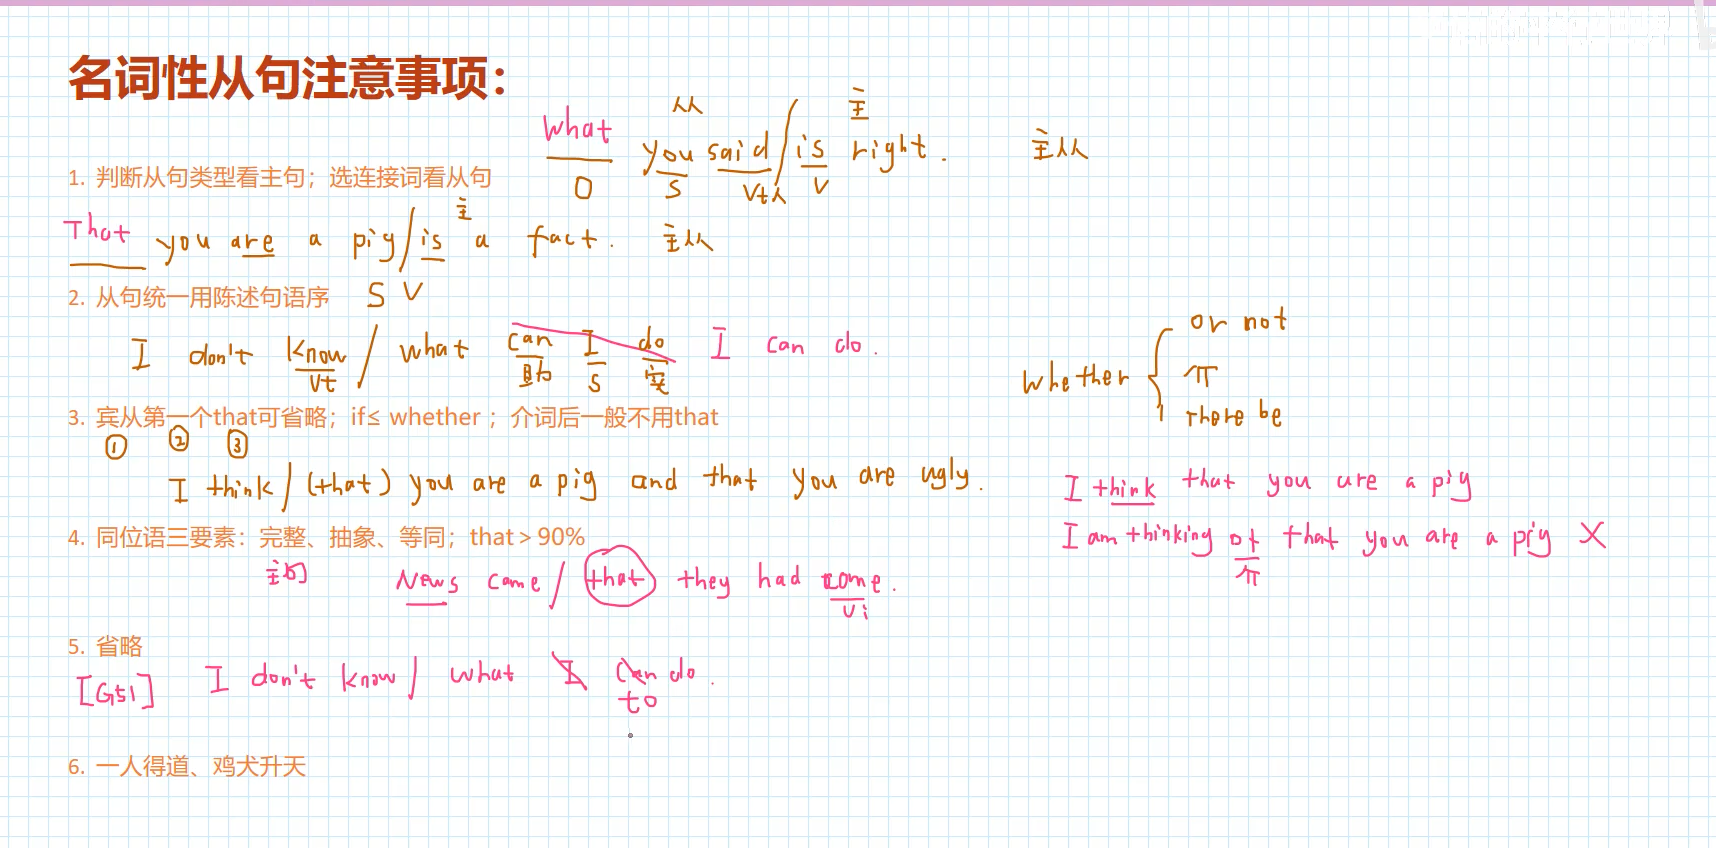 名词性从句注意事项：
从 主
What you said / is right. 主从
O S Vt从 V
1. 判断从句类型看主句；选连接词看从句
主
That you are a pig / is a fact. 主从
2. 从句统一用陈述句语序 S V
I don't know / what can I do I can do.
Vt 助 S 实
whether { or not
π
There be
3. 宾从第一个that可省略；if≤ whether ；介词后一般不用that
① ② ③
I think / (that) you are a pig and that you are ugly.
I think that you are a pig
I am thinking of that you are a pig X
π
4. 同位语三要素：完整、抽象、等同；that＞90%
主句 News came / that they had come.
vi
5. 省略
[G51] I don't know / what I can do.
to
6. 一人得道、鸡犬升天